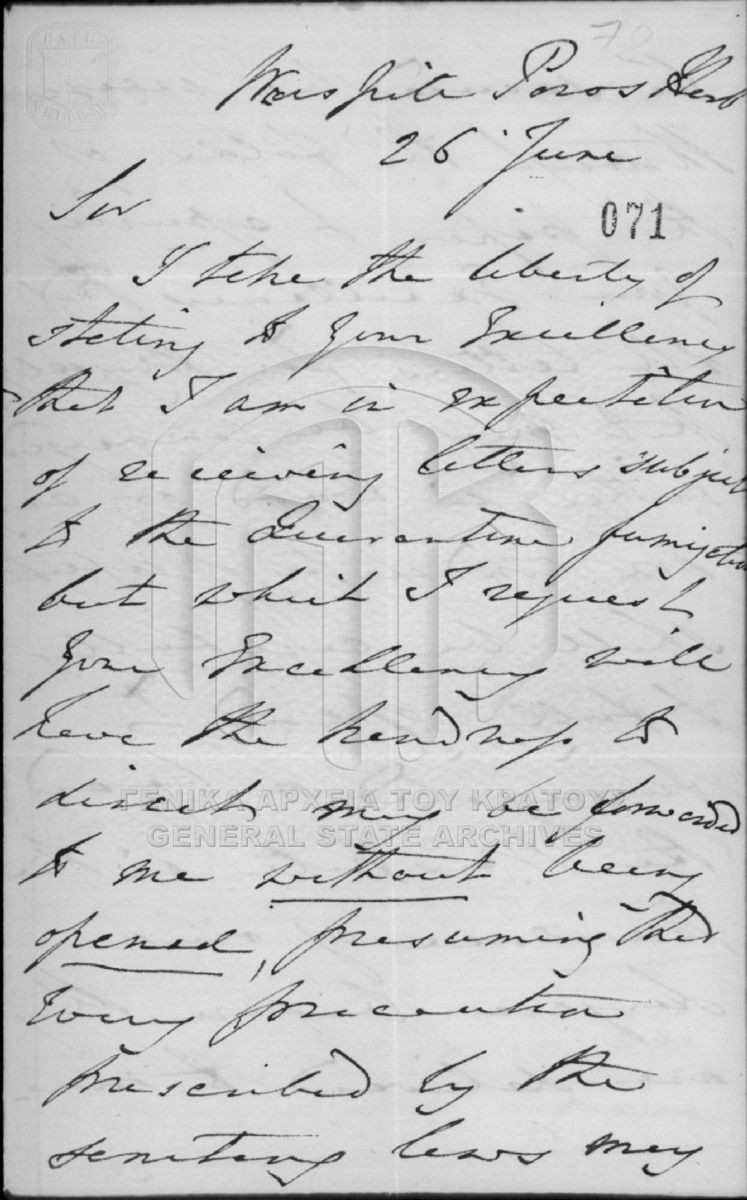 70
BATH
Warspite Poros Harb
26 June
071
Sir
I take the liberty of
stating to Your Excellency
that I am in expectation
of receiving letters subject
to the Quarantine fumigation
but which I request
Your Excellency will
have the kindness to
direct may be forwarded
to me without being
opened, presuming that
every precaution
prescribed by the
sanitary laws may
ΓΕΝΙΚΑ ΑΡΧΕΙΑ ΤΟΥ ΚΡΑΤΟΥΣ
GENERAL STATE ARCHIVES